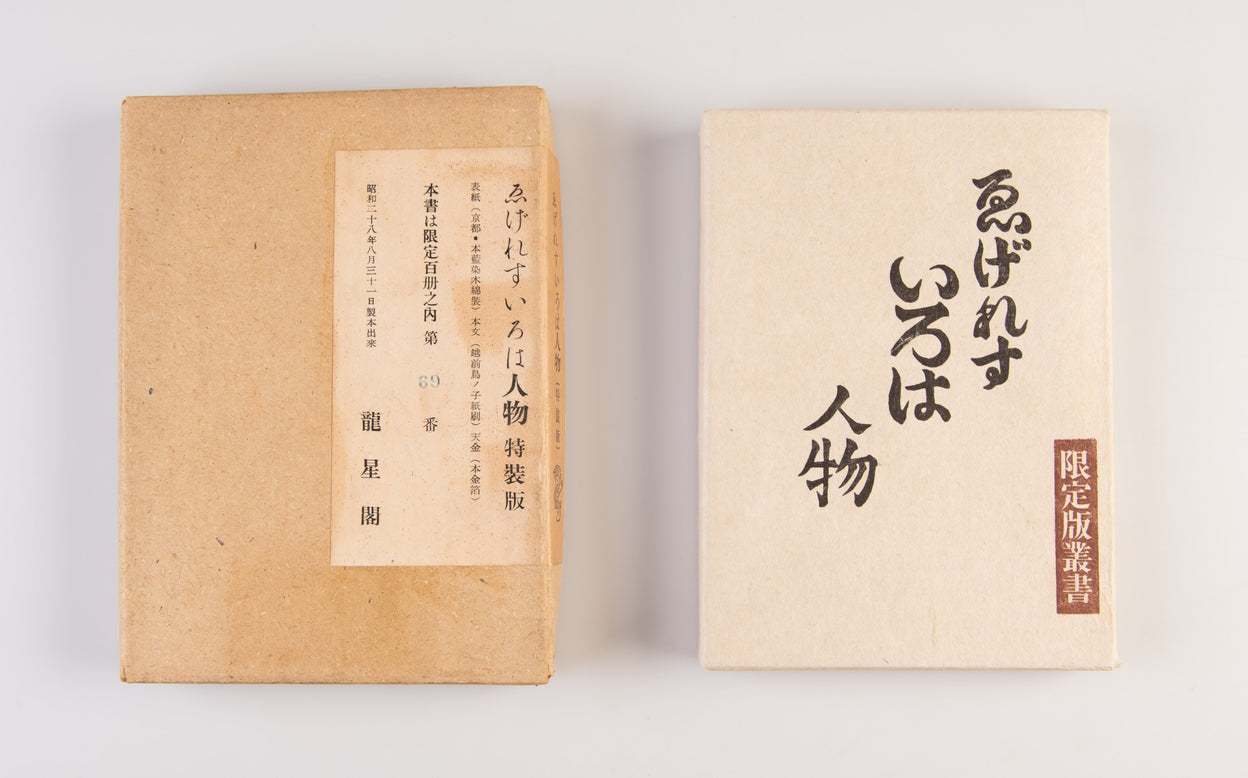 ゑげれすいろは人物 特装版
表紙（京都・本藍染木綿装）本文（越前鳥ノ子紙刷）天金（本金箔）
本書は限定百册之內 第 69 番
昭和二十八年八月三十一日製本出來
龍星閣
ゑげれすいろは人物（特装版）
ゑげれす
いろは
人物
限定版叢書